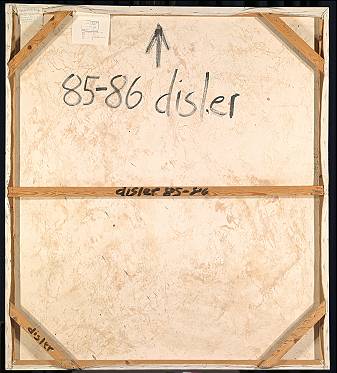 85-86 disler
disler 85-86
disler